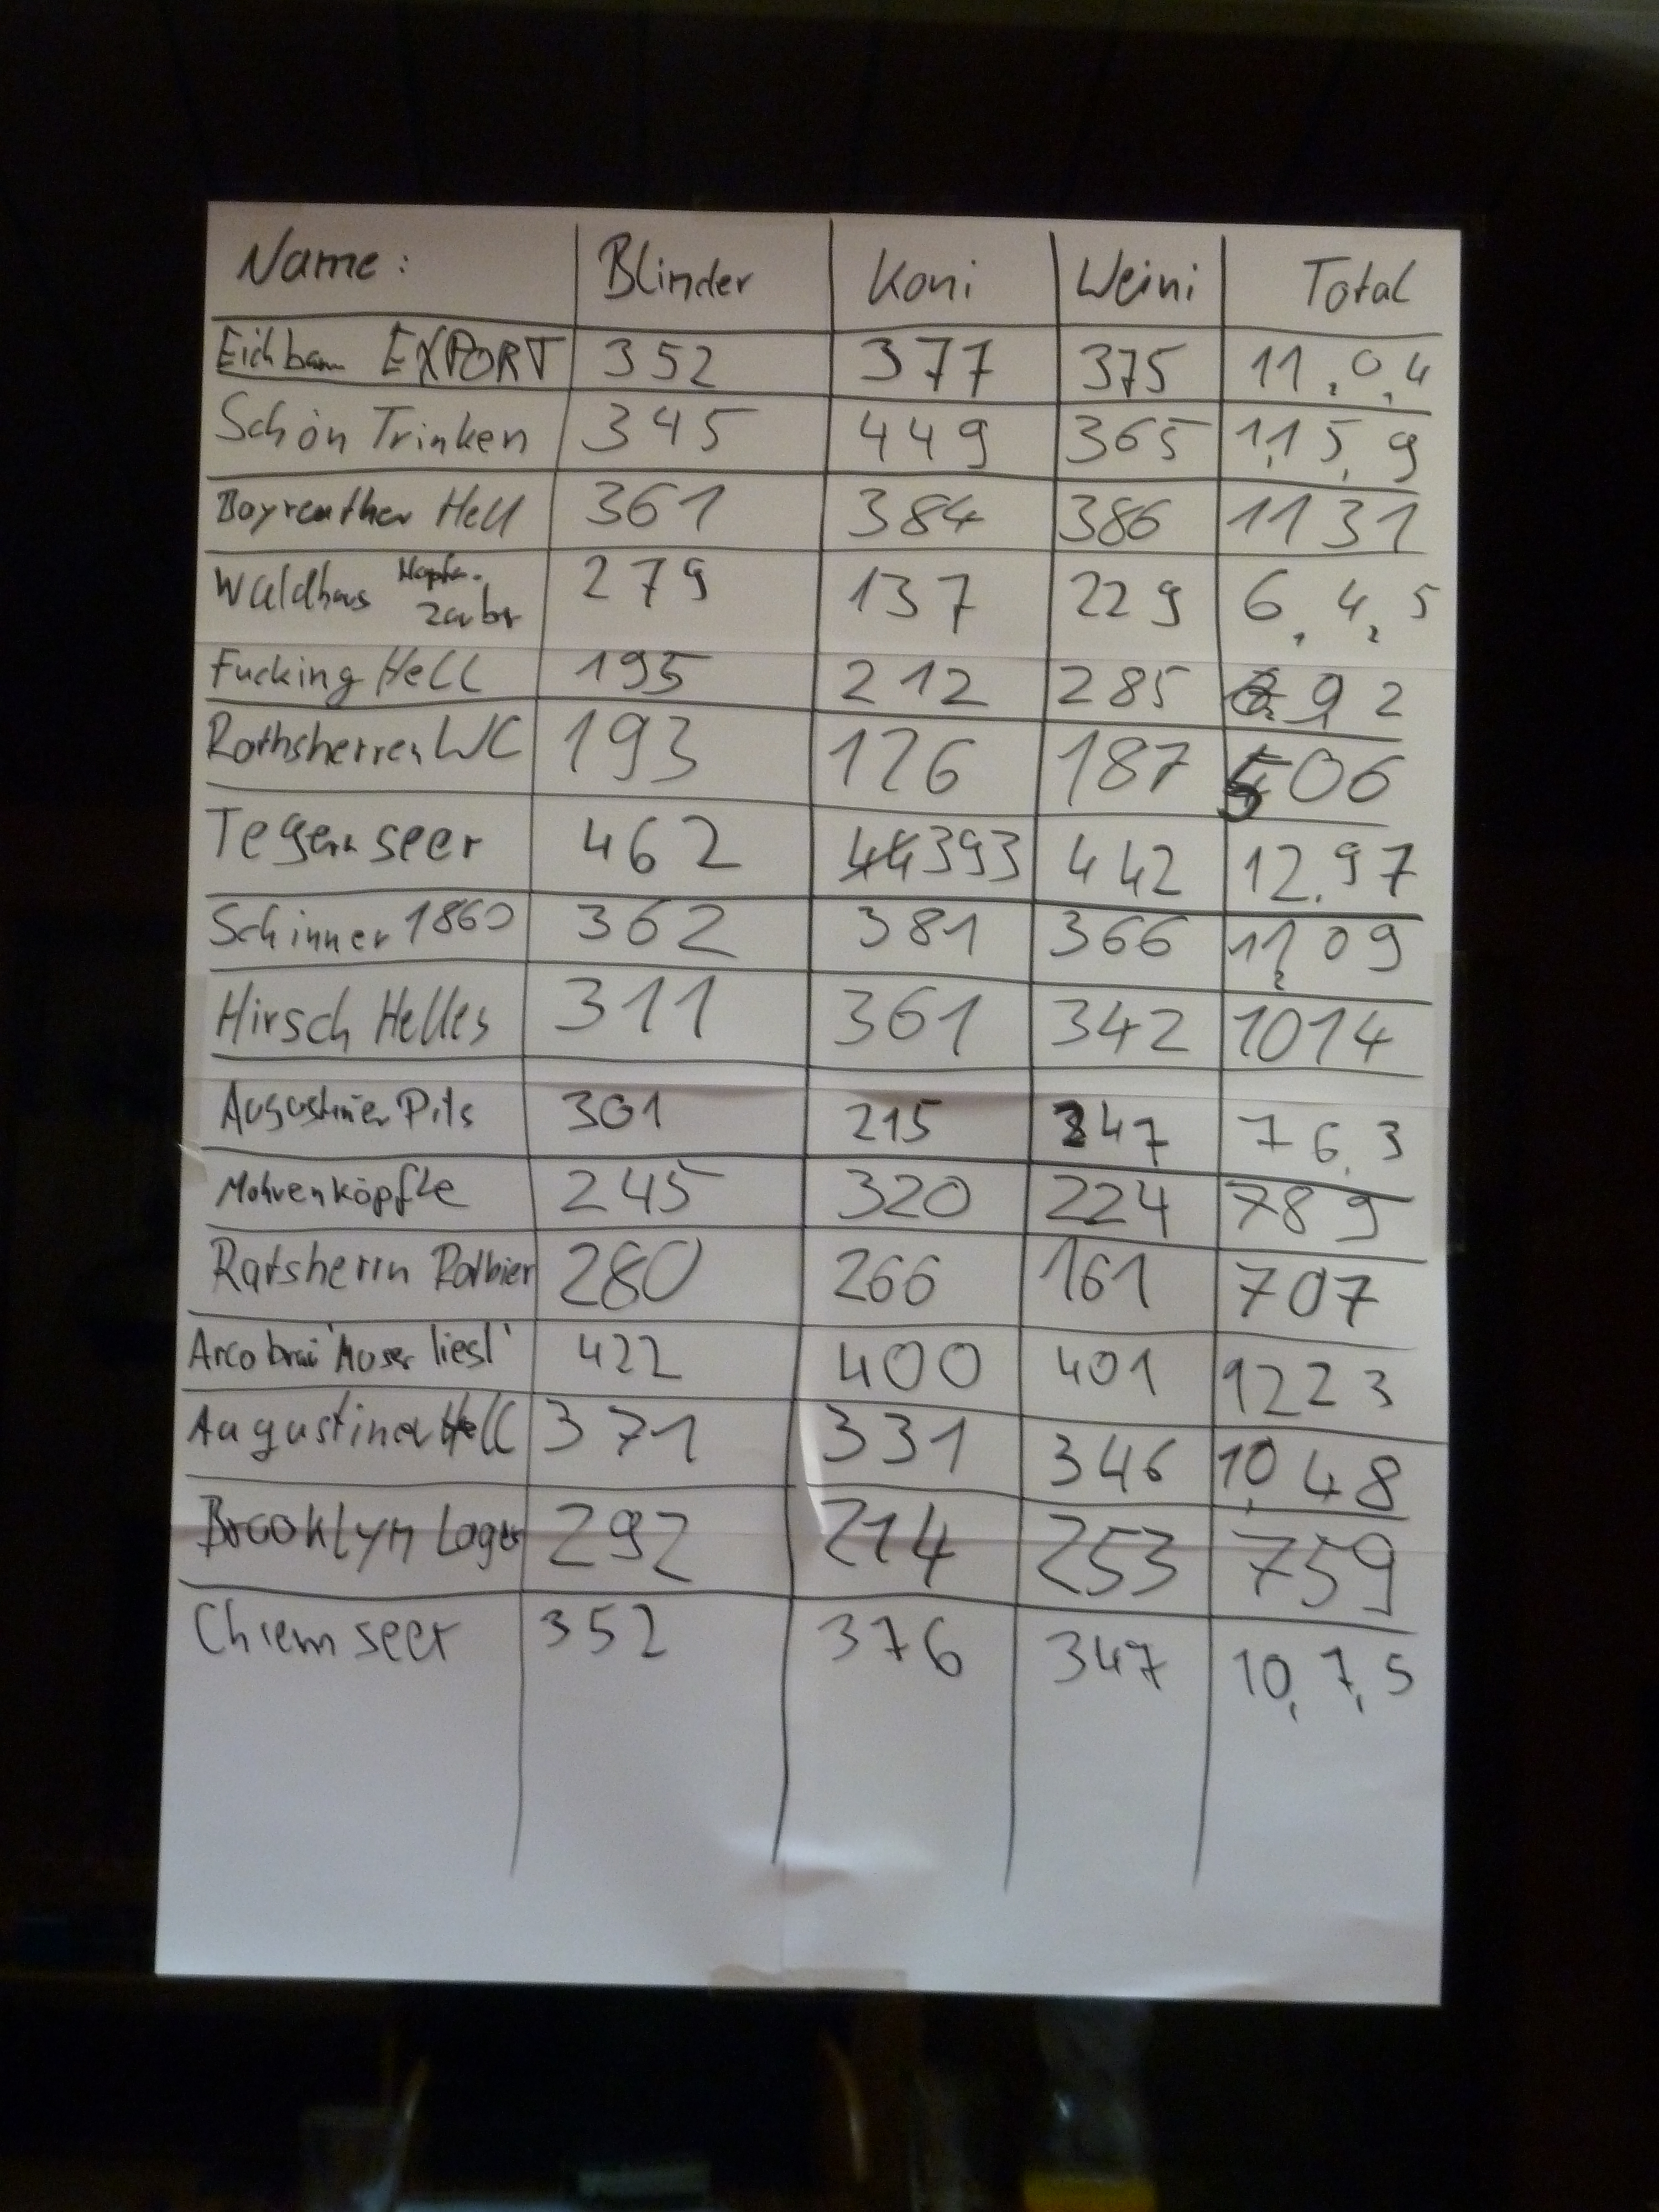 Name: Blinder Koni Weini Total
Eichbaum EXPORT 352 377 375 11,0,4
Schön Trinken 345 449 365 1,15,9
Bayreuther Hell 361 384 386 1131
Waldhaus Hopfen- 279 137 229 6,4,5
zauber
Fucking Hell 195 212 285 692
Rothsherren WC 193 126 187 506
Tegernseer 462 393 442 12.97
Schinner 1860 362 381 366 11,09
Hirsch Helles 311 361 342 1014
Augustiner Pils 301 215 247 76,3
Mohrenköpfle 245 320 224 789
Ratsherrn Rotbier 280 266 161 707
Arcobräu 'Moser liesl' 422 400 401 1223
Augustiner Hell 371 331 346 10,48
Brooklyn Lager 292 214 253 759
Chiemseer 352 376 347 10,7,5